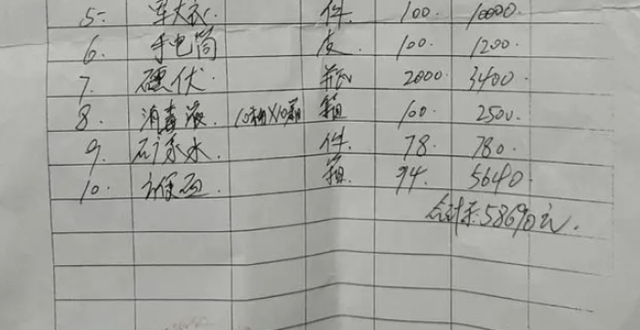 5. 军大衣 件 100. 10000.
6. 手电筒 支 100. 1200.
7. 碘伏 瓶 2000. 3400.
8. 消毒液 箱 100. 2500.
9. 矿泉水 件. 78. 780.
10. 方便面 箱. 94. 5640.
合计: 58690元.